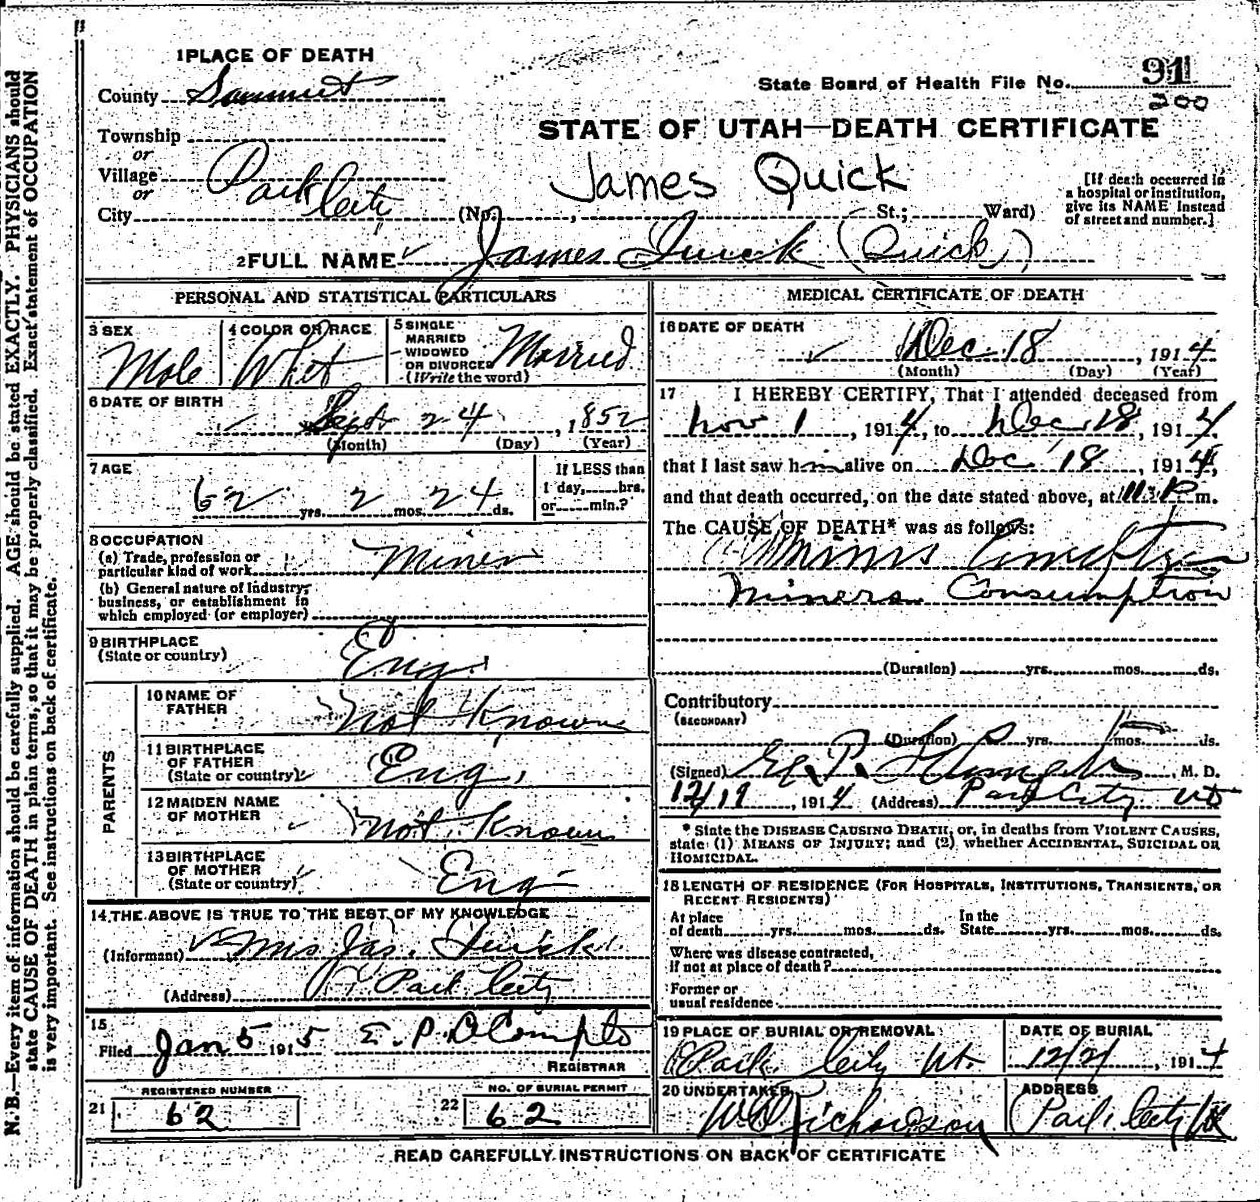 N. B.—Every item of information should be carefully supplied. AGE should be stated EXACTLY. PHYSICIANS should
state CAUSE OF DEATH in plain terms, so that it may be properly classified. Exact statement of OCCUPATION
is very important. See instructions on back of certificate.
1 PLACE OF DEATH
County Summit
Township
or
Village
or
City Park City
State Board of Health File No. 91
200
STATE OF UTAH—DEATH CERTIFICATE
James Quick
(No. , St.; Ward)
[If death occurred in
a hospital or institution,
give its NAME instead
of street and number.]
2 FULL NAME James Quick (Quick)
PERSONAL AND STATISTICAL PARTICULARS
3 SEX
Male
4 COLOR OR RACE
Whet
5 SINGLE
MARRIED
WIDOWED
OR DIVORCED
(Write the word)
Married
6 DATE OF BIRTH
Sept 24, 1852
(Month) (Day) (Year)
7 AGE
62 yrs. 2 mos. 24 ds.
If LESS than
1 day, hrs.
or min.?
8 OCCUPATION
(a) Trade, profession or
particular kind of work Miner
(b) General nature of industry,
business, or establishment in
which employed (or employer)
9 BIRTHPLACE
(State or country) Eng.
PARENTS
10 NAME OF
FATHER Not Known
11 BIRTHPLACE
OF FATHER
(State or country) Eng.
12 MAIDEN NAME
OF MOTHER Not Known
13 BIRTHPLACE
OF MOTHER
(State or country) Eng
14 THE ABOVE IS TRUE TO THE BEST OF MY KNOWLEDGE
(Informant) Mrs Jas. Quick
(Address) Park City
15
Filed Jan 5 1915 E. P.
REGISTRAR
REGISTERED NUMBER
21 62
NO. OF BURIAL PERMIT
22 62
MEDICAL CERTIFICATE OF DEATH
16 DATE OF DEATH
Dec. 18, 1914
(Month) (Day) (Year)
17 I HEREBY CERTIFY, That I attended deceased from
Nov 1, 1914, to Dec. 18, 1914,
that I last saw him alive on Dec 18, 1914,
and that death occurred, on the date stated above, at 11 P m.
The CAUSE OF DEATH* was as follows:
Miners Consumption
(Duration) yrs. mos. ds.
Contributory
(SECONDARY)
(Duration) yrs. mos. ds.
(Signed) , M. D.
12/19, 1914 (Address) Park City Ut
* State the DISEASE CAUSING DEATH, or, in deaths from VIOLENT CAUSES,
state (1) MEANS OF INJURY; and (2) whether ACCIDENTAL, SUICIDAL OR
HOMICIDAL.
18 LENGTH OF RESIDENCE (FOR HOSPITALS, INSTITUTIONS, TRANSIENTS, OR
RECENT RESIDENTS)
At place
of death yrs. mos. ds.
In the
State yrs. mos. ds.
Where was disease contracted,
if not at place of death?
Former or
usual residence
19 PLACE OF BURIAL OR REMOVAL
Park City Ut.
DATE OF BURIAL
12/21, 1914
20 UNDERTAKER
Richardson
ADDRESS
Park City Ut
READ CAREFULLY INSTRUCTIONS ON BACK OF CERTIFICATE